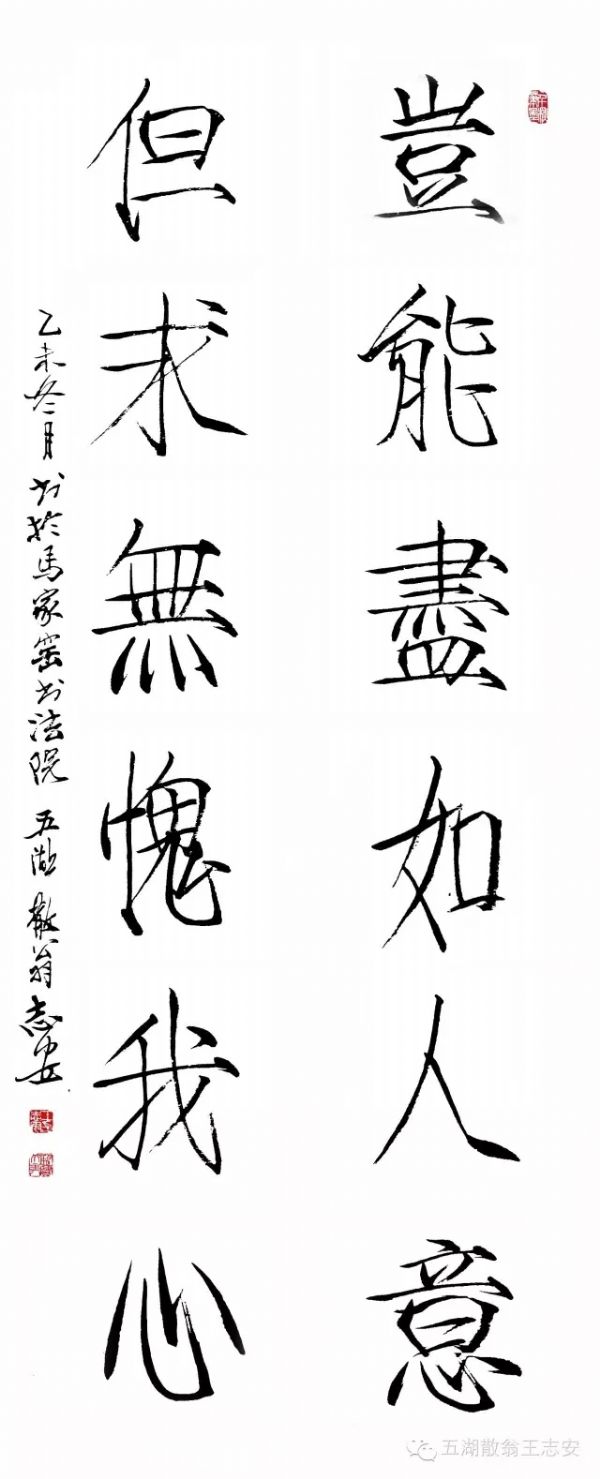 豈能盡如人意
但求無愧我心
乙未冬月书於馬家窑书法院 五湖散翁志安
五湖散翁王志安